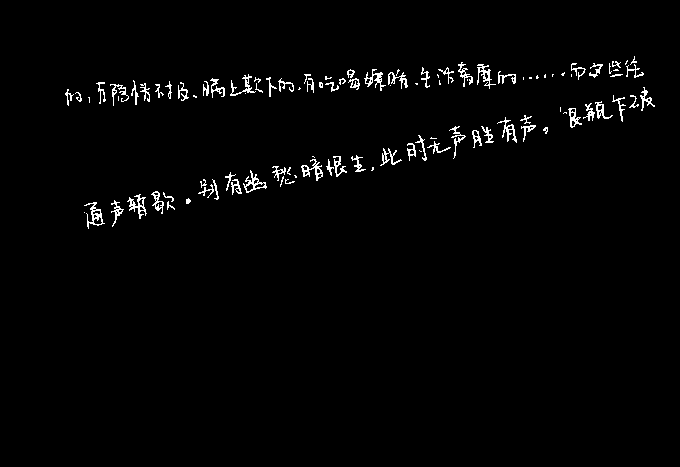 的,有隐情不报、瞒上欺下的,有吃喝嫖赌、生活奢靡的……而这些任
通声暂歇。别有幽愁暗恨生,此时无声胜有声。银瓶乍破